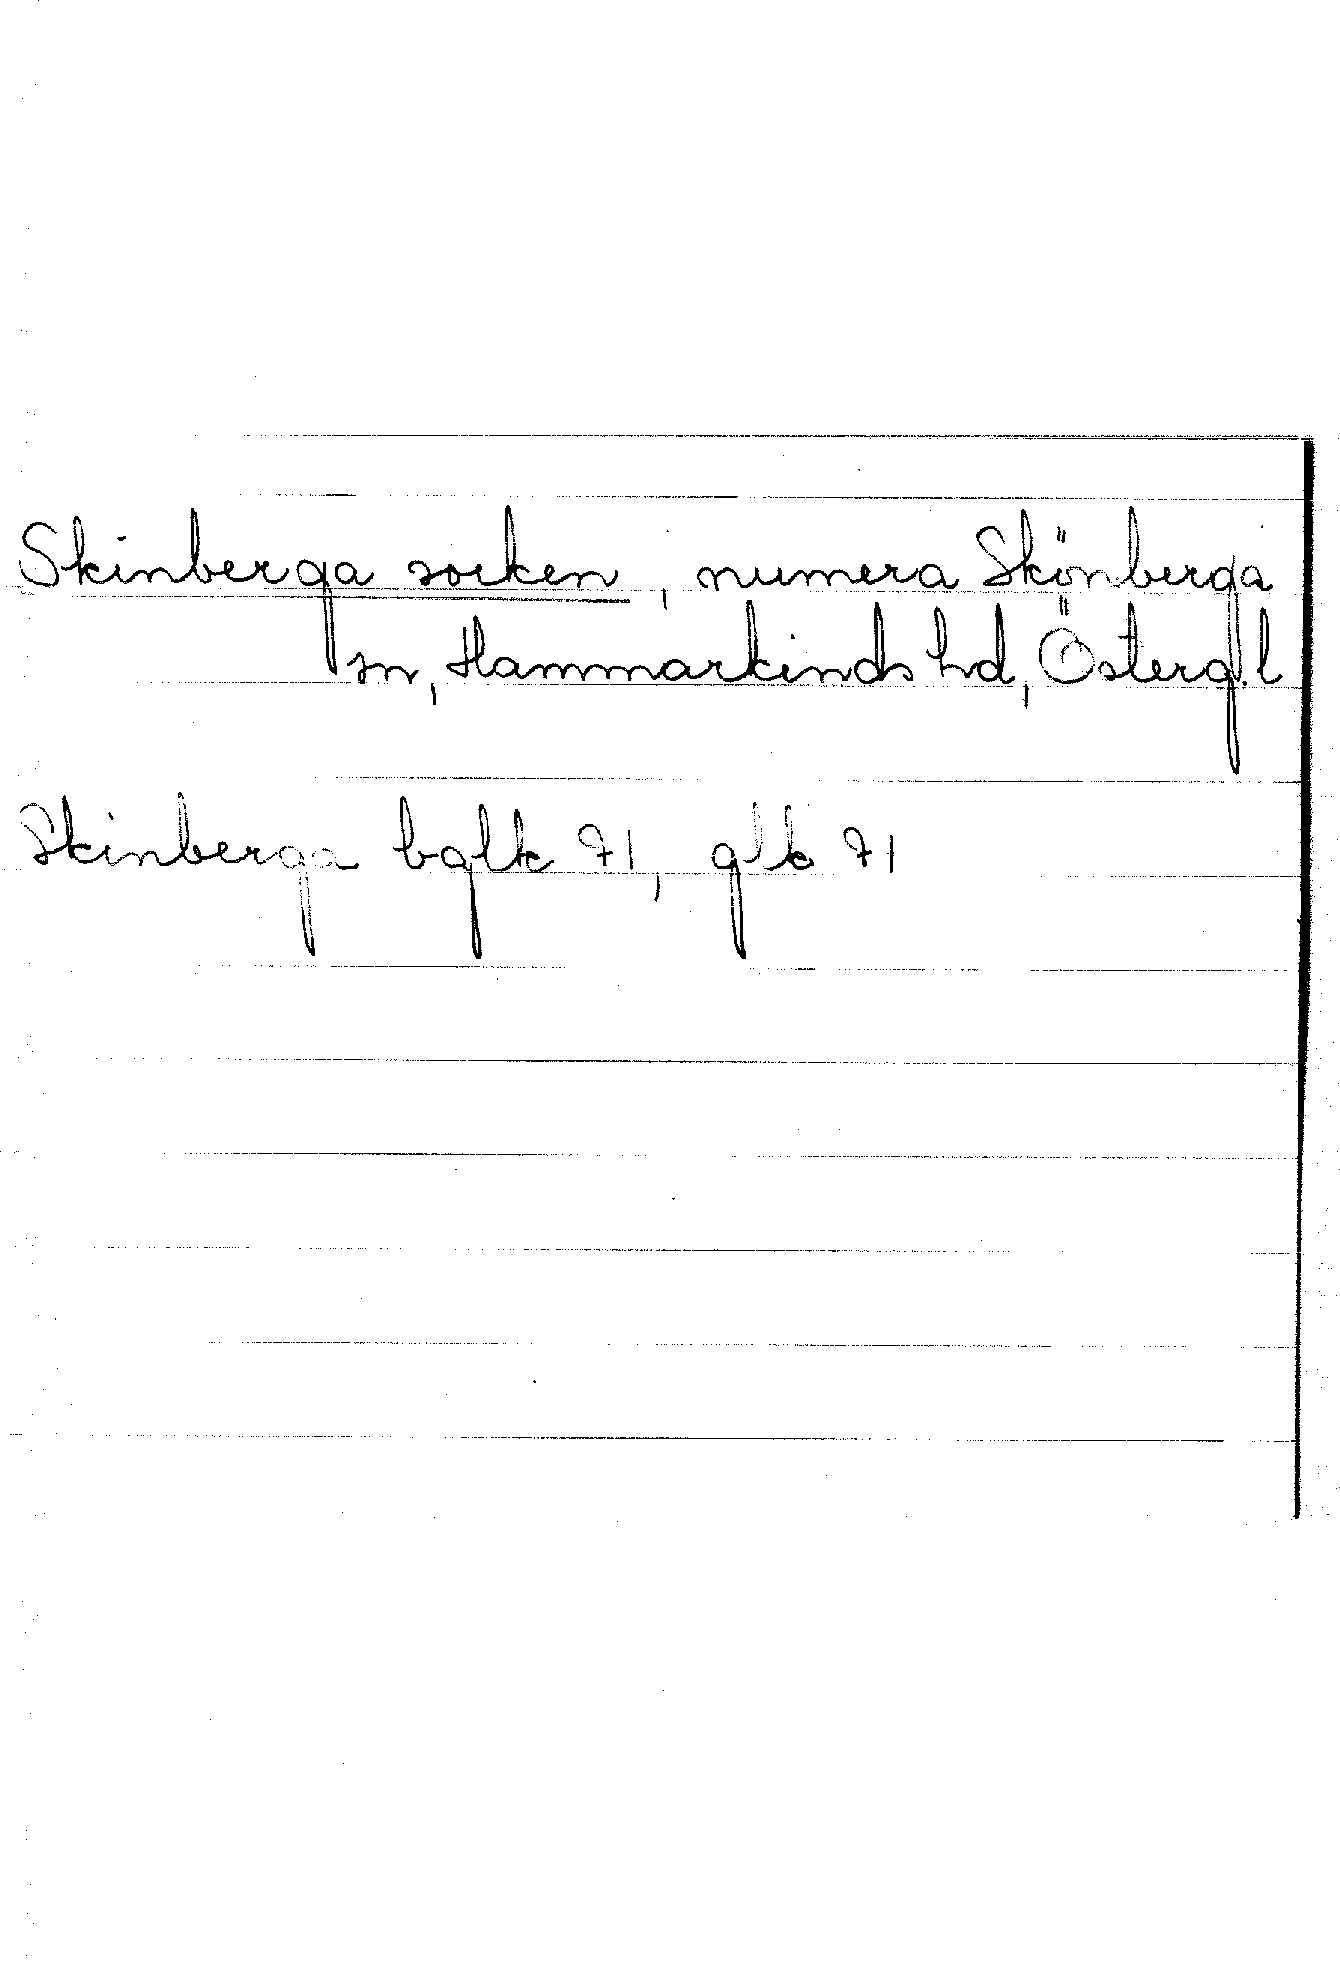 Skinberga socken, numera Skönberga
sn, Hammarkinds hd, Österg.l
Skinberga bglk 71, glk 71